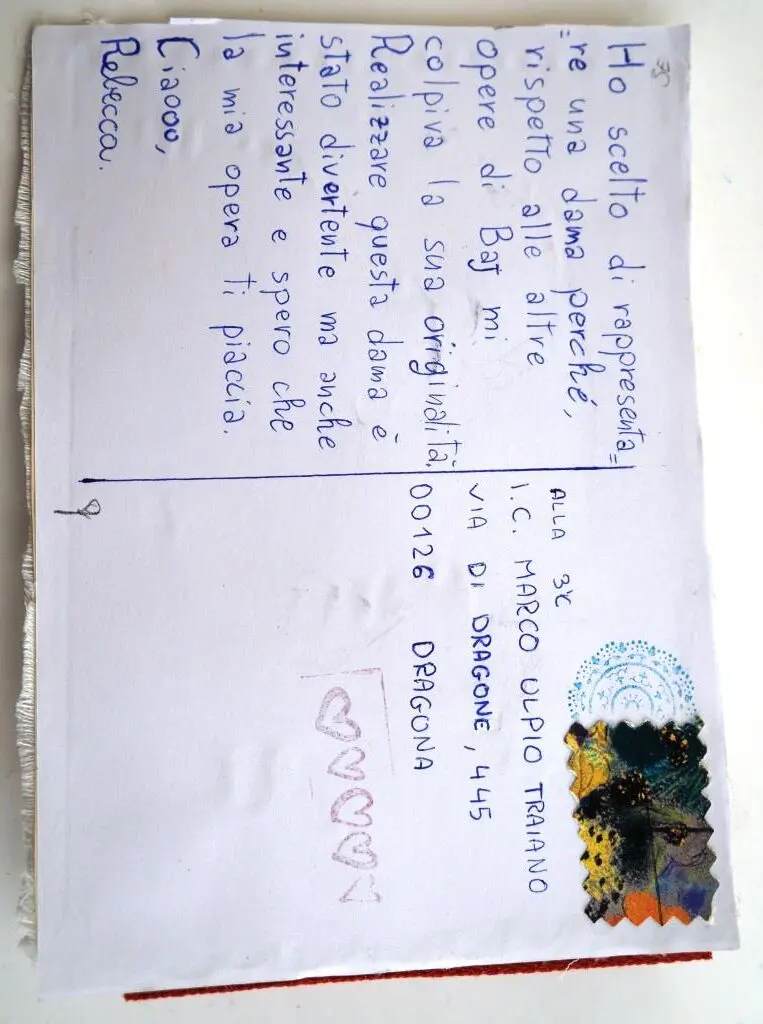 Ho scelto di rappresenta=
=re una dama perché,
rispetto alle altre
opere di Baj mi
colpiva la sua originalità.
Realizzare questa dama è
stato divertente ma anche
interessante e spero che
la mia opera ti piaccia.
Ciaooo,
Rebecca.
ALLA 3°C
I.C. MARCO ULPIO TRAIANO
VIA DI DRAGONE, 445
00126 DRAGONA